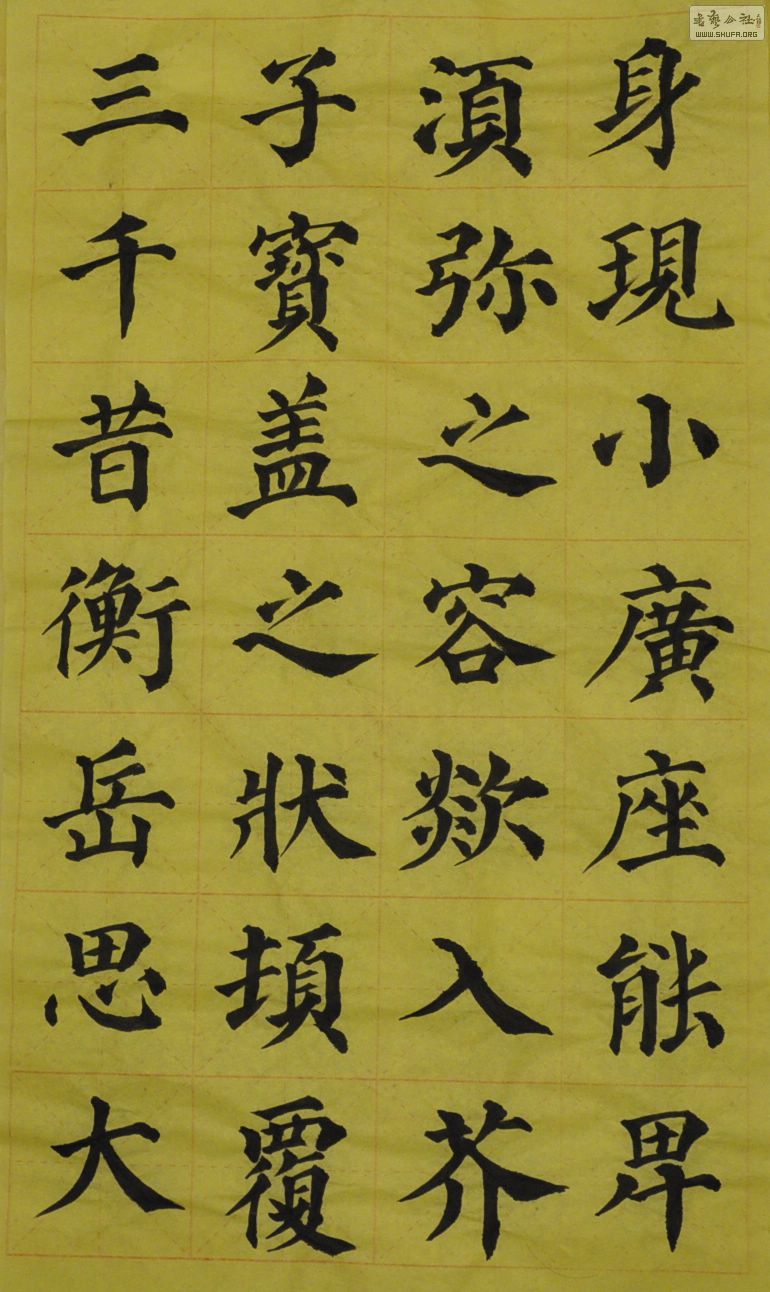 身現小廣座能卑
湏弥之容欻入芥
子寶盖之狀頓覆
三千昔衡岳思大
書藝公社
WWW.SHUFA.ORG